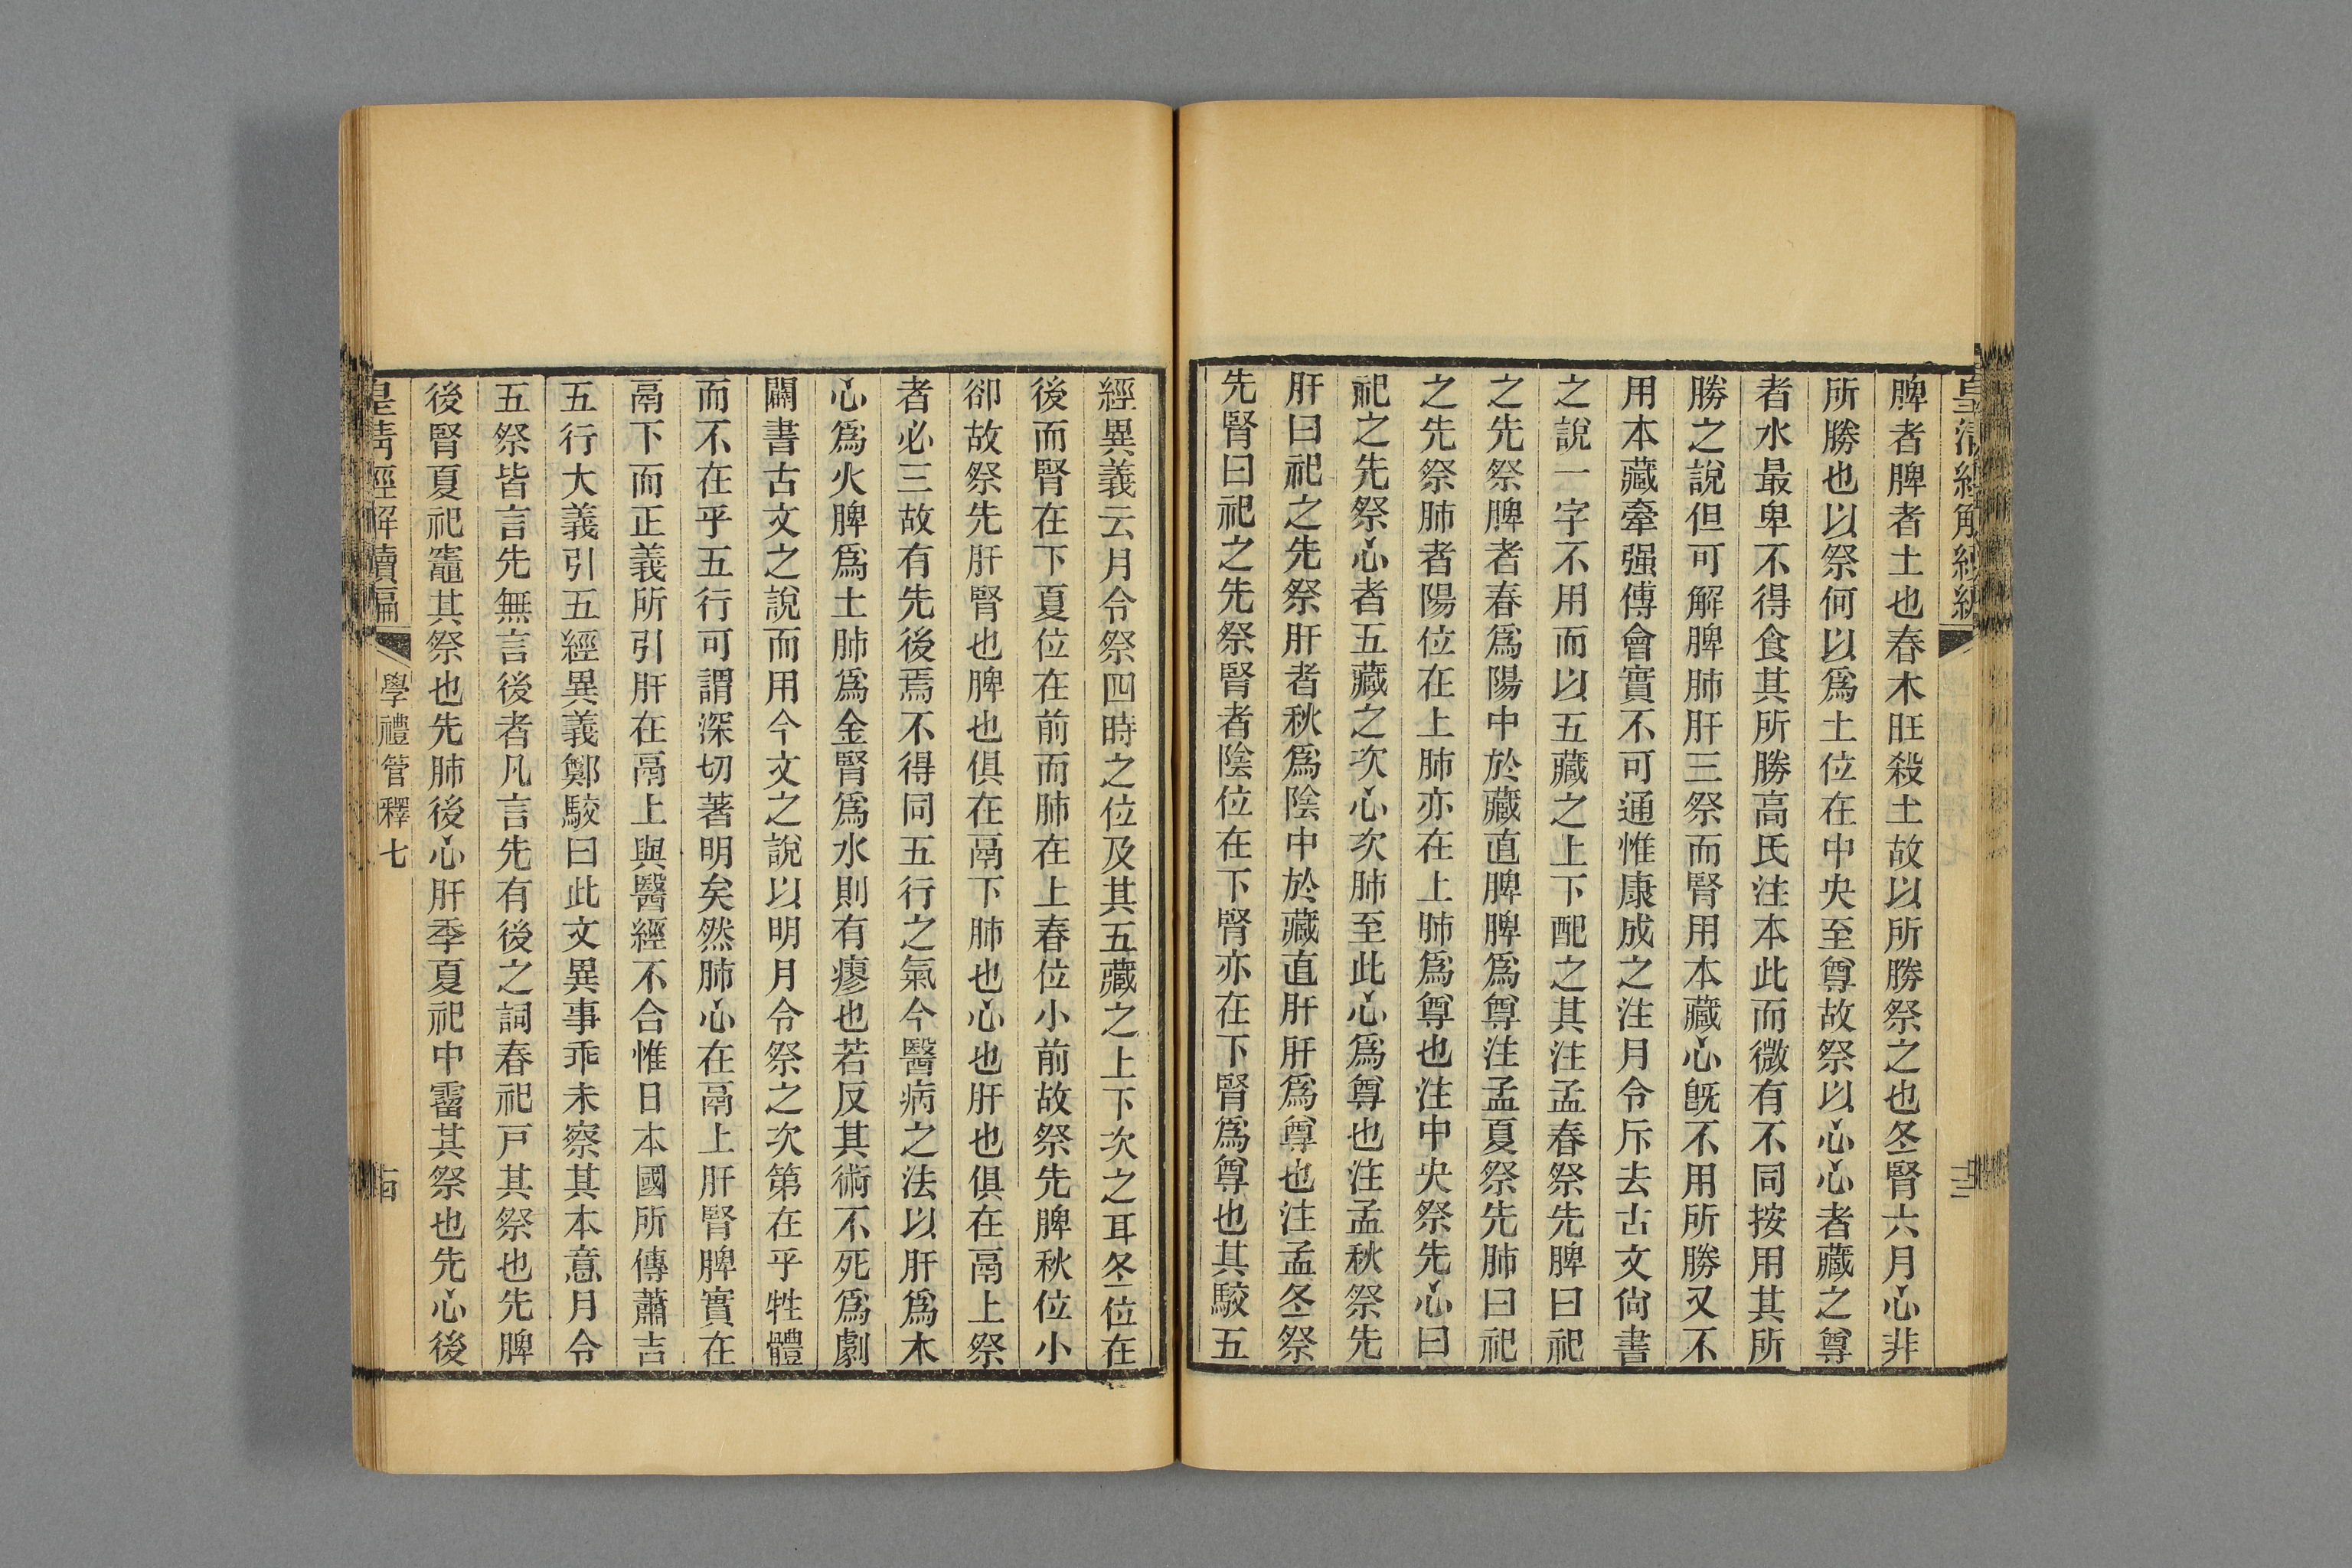 脾者脾者土也春木旺殺土故以所勝祭之也冬腎六月心非
所勝也以祭何以爲土位在中央至尊故祭以心心者藏之尊
者水最卑不得食其所勝高氏注本此而微有不同按用其所
勝之說但可解脾肺肝三祭而腎用本藏心旣不用所勝又不
用本藏牽强傅會實不可通惟康成之注月令斥去古文尙書
之說一字不用而以五藏之上下配之其注孟春祭先脾曰祀
之先祭脾者春爲陽中於藏直脾脾爲尊注孟夏祭先肺曰祀
之先祭肺者陽位在上肺亦在上肺爲尊也注中央祭先心曰
祀之先祭心者五藏之次心次肺至此心爲尊也注孟秋祭先
肝曰祀之先祭肝者秋爲陰中於藏直肝肝爲尊也注孟冬祭
先腎曰祀之先祭腎者陰位在下腎亦在下腎爲尊也其駮五
經異義云月令祭四時之位及其五藏之上下次之耳冬位在
後而腎在下夏位在前而肺在上春位小前故祭先脾秋位小
卻故祭先肝腎也脾也俱在鬲下肺也心也肝也俱在鬲上祭
者必三故有先後焉不得同五行之氣今醫病之法以肝爲木
心爲火脾爲土肺爲金腎爲水則有瘳也若反其術不死爲劇
闢書古文之說而用今文之說以明月令祭之次第在乎牲體
而不在乎五行可謂深切著明矣然肺心在鬲上肝腎脾實在
鬲下而正義所引肝在鬲上與醫經不合惟日本國所傳蕭吉
五行大義引五經異義鄭駮曰此文異事乖未察其本意月令
五祭皆言先無言後者凡言先有後之詞春祀戸其祭也先脾
後腎夏祀竈其祭也先肺後心肝季夏祀中霤其祭也先心後
皇淸經解續編
學禮管釋七